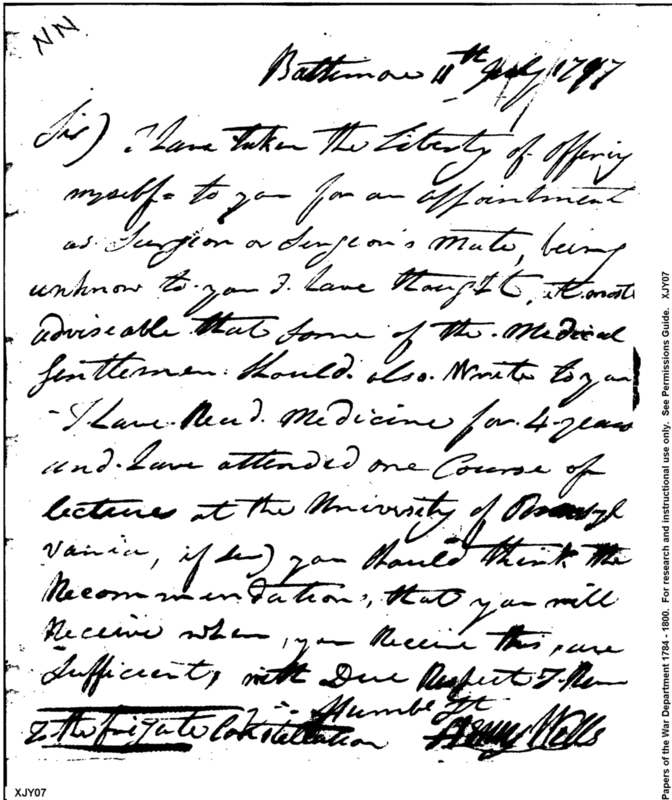 NN
Baltimore 11th July 1797
Sir) I Have taken the Liberty of offering
myself = to you for an appointment
as Surgeon or Surgeon's Mate, being
unknow to you I have thought, it most
adviseable that some of the Medical
Gentlemen should also Write to you
- I Have Read Medicine for 4 years
and have attended one Course of
lectures at the University of Pennsyl
vania, if Sir) you should think the
Recommendations, that you will
Receive when you Receive this, are
Sufficient, with Due Respect I Rem
Humble St
& the frigate Constellation Henry Wells
XJY07
Papers of the War Department 1784 - 1800. For research and instructional use only. See Permissions Guide. XJY07